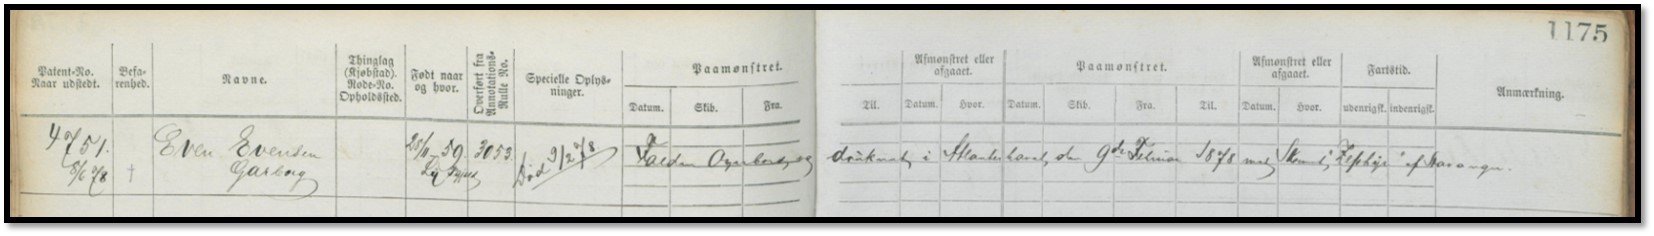 1175
Patent-No.
Naar udstedt.
Befa-
renhed.
Navne.
Thinglag
(Kjøbstad).
Rode-No.
Opholdssted.
Født naar
og hvor.
Overført fra
Annotations-
Rulle No.
Specielle Oplys-
ninger.
Paamønstret.
Datum.
Skib.
Fra.
Til.
Afmønstret eller
afgaaet.
Datum.
Hvor.
Paamønstret.
Datum.
Skib.
Fra.
Til.
Afmønstret eller
afgaaet.
Datum.
Hvor.
Fartstid.
udenrigsk.
indenrigsk.
Anmærkning.
4751.
5/6 78
†
Even Evensen
Garborg
25/11 59
3053.
Død 9/2 78
Falden Overbord og druknet i Atlanterhavet den 9de Februar 1878 med "Zephyr" af Stavanger.